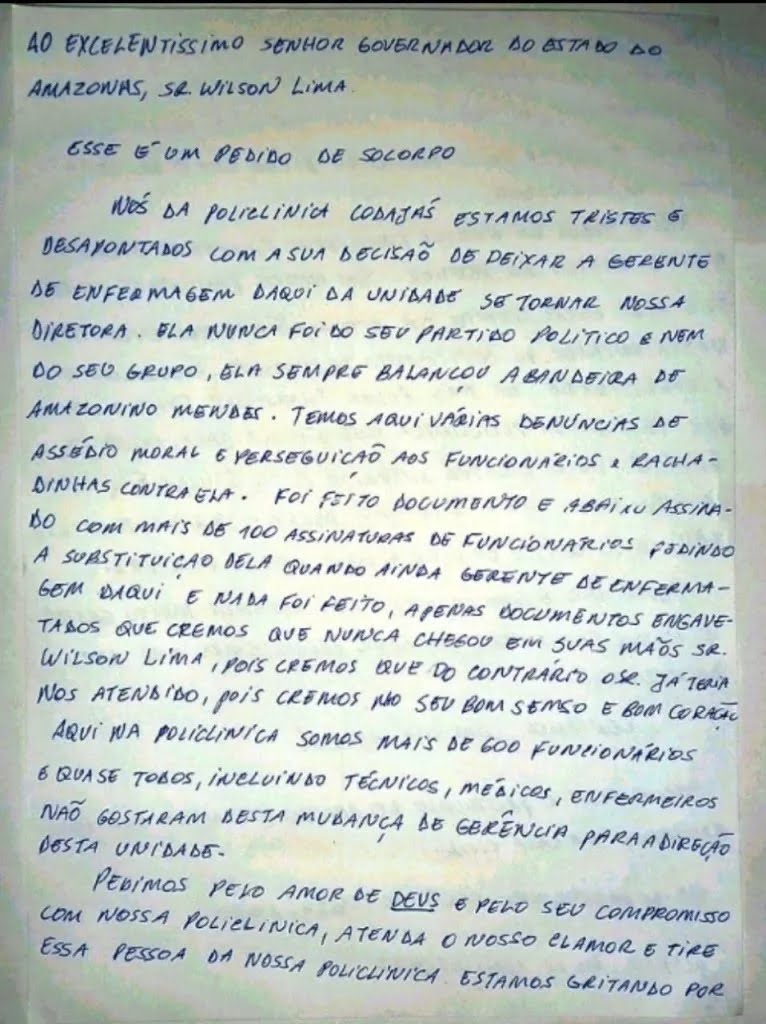 AO EXCELENTÍSSIMO SENHOR GOVERNADOR DO ESTADO DO
AMAZONAS, SR. WILSON LIMA.
ESSE É UM PEDIDO DE SOCORPO
NÓS DA POLICLINICA CODAJÁS ESTAMOS TRISTES E
DESAPONTADOS COM A SUA DECISAÕ DE DEIXAR A GERENTE
DE ENFERMAGEM DAQUI DA UNIDADE SE TORNAR NOSSA
DIRETORA. ELA NUNCA FOI DO SEU PARTIDO POLÍTICO E NEM
DO SEU GRUPO, ELA SEMPRE BALANÇOU A BANDEIRA DE
AMAZONINO MENDES. TEMOS AQUI VÁRIAS DENÚNCIAS DE
ASSÉDIO MORAL E PERSEGUICAÕ AOS FUNCIONÁRIOS E RACHA-
DINHAS CONTRA ELA. FOI FEITO DOCUMENTO E ABAIXO ASSINA-
DO COM MAIS DE 100 ASSINATURAS DE FUNCIONÁRIOS PEDINDO
A SUBSTITUIÇAO DELA QUANDO AINDA GERENTE DE ENFERMA-
GEM DAQUI E NADA FOI FEITO, APENAS DOCUMENTOS ENGAVE-
TADOS QUE CREMOS QUE NUNCA CHEGOU EM SUAS MAÕS SR.
WILSON LIMA, POIS CREMOS QUE DO CONTRÁRIO O SR. JÁ TERIA
NOS ATENDIDO, POIS CREMOS NO SEU BOM SENSO E BOM CORAÇAÕ
AQUI NA POLICLINICA SOMOS MAIS DE 600 FUNCIONÁRIOS
E QUASE TODOS, INCLUINDO TÉCNICOS, MÉDICOS, ENFERMEIROS
NAÕ GOSTARAM DESTA MUDANÇA DE GERÊNCIA PARA A DIREÇAÕ
DESTA UNIDADE.
PEDIMOS PELO AMOR DE DEUS E PELO SEU COMPROMISSO
COM NOSSA POLICLINICA, ATENDA O NOSSO CLAMOR E TIRE
ESSA PESSOA DA NOSSA POLICLINICA. ESTAMOS GRITANDO POR